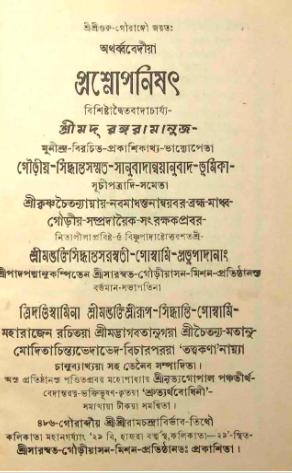 শ্রীশ্রীগুরু-গৌরাঙ্গৌ জয়তঃ
অথর্ব্ববেদীয়া
প্রশ্নোপনিষৎ
বিশিষ্টাদ্বৈতবাদাচার্য্য-
শ্রীমদ্ রঙ্গরামানুজ-
মুনীন্দ্র-বিরচিত-প্রকাশিকাখ্য-ভাষ্যোপেতা
গৌড়ীয়-সিদ্ধান্তসম্মত-সানুবাদান্বয়ানুবাদ-ভূমিকা-
সূচীপত্রাদি-সমেতা
শ্রীকৃষ্ণচৈতন্যাম্নায়-নবমাধস্তনান্বয়বর-ব্রহ্ম-মাধ্ব-
গৌড়ীয়-সম্প্রদায়ৈক-সংরক্ষকপ্রবর-
নিত্যলীলাপ্রবিষ্ট-ওঁ বিষ্ণুপাদাষ্টোত্তরশতশ্রী-
শ্রীমদ্ভক্তিসিদ্ধান্তসরস্বতী-গোস্বামি-প্রভুপাদানাং
শ্রীপাদপদ্মানুকম্পিতেন শ্রীসারস্বত-গৌড়ীয়াসন-মিশন-প্রতিষ্ঠানস্য
বর্ত্তমান-সভাপতিনা
ত্রিদণ্ডিস্বামিনা শ্রীমদ্ভক্তিশ্রীরূপ-সিদ্ধান্তি-গোস্বামি-
মহারাজেন রচিতয়া শ্রীমদ্ভাগবতানুগয়া শ্রীচৈতন্য-মতানু-
মোদিতাচিন্ত্যভেদাভেদ-বিচারপরয়া 'তত্ত্বকণা'-নাম্ন্যা
চানুব্যাখ্যয়া সহ তেনৈব সম্পাদিতা।
অস্য প্রতিষ্ঠানস্য পণ্ডিতপ্রবর মহোপাধ্যায় শ্রীনৃত্যগোপাল পঞ্চতীর্থ-
বেদান্তরত্ন-ভক্তিভূষণ-কৃতয়া 'শ্রুত্যর্থবোধিনী'-
সমাখ্যয়া টীকয়া সমন্বিতা।
৪৮৬-গৌরাব্দীয় শ্রীশ্রীরামচন্দ্রাবির্ভাব-তিথৌ
কলিকাতা মহানগর্য্যাং '২৯ বি, হাজরা বর্ত্মস্থ, কলিকাতা-২৯'-স্থিত-
শ্রীসারস্বত-গৌড়ীয়াসন-মিশন-প্রতিষ্ঠানতঃ প্রকাশিতা।